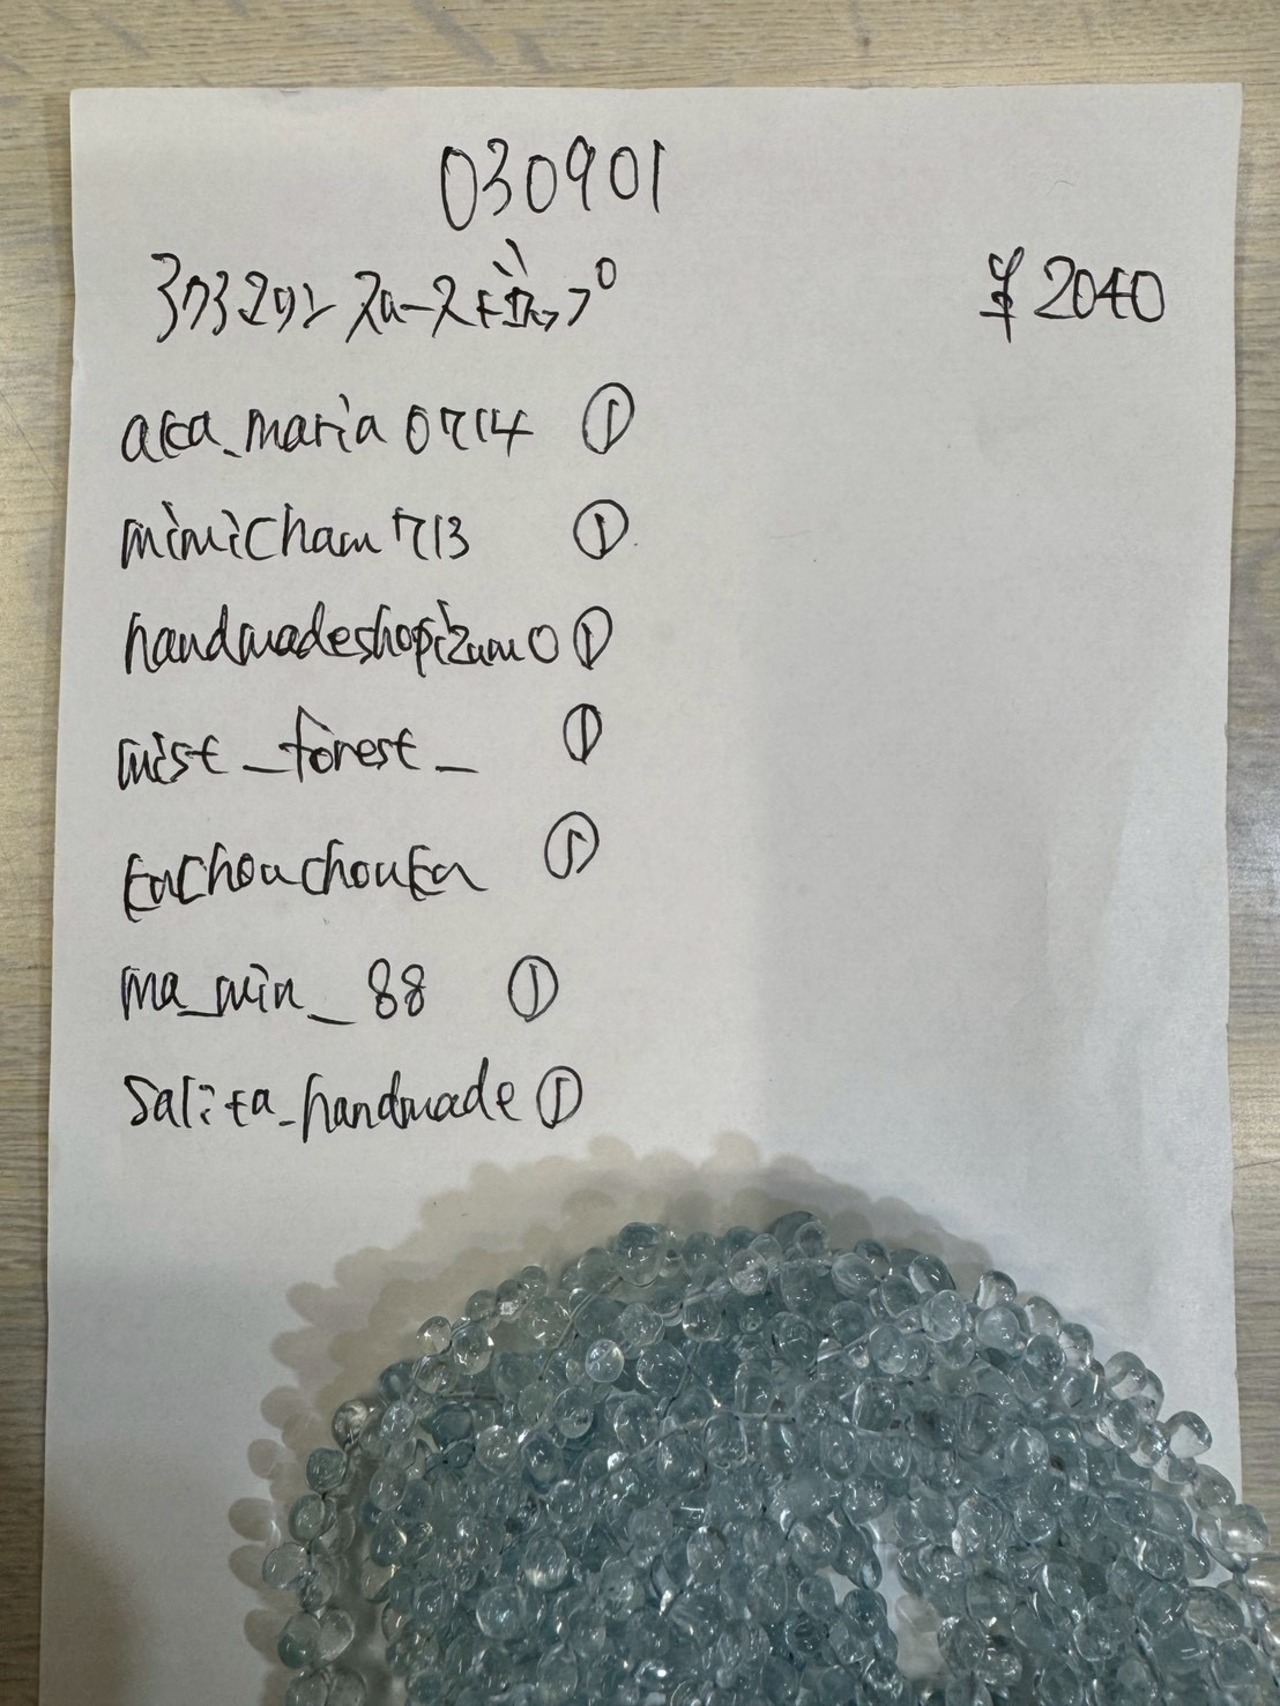 030901
アクアマリン スムースドロップ ¥2040
aka_maria0714 ①
mimichan713 ①
handmadeshopizumo ①
mist_forest_ ①
kachouchouka ①
ma_min_88 ①
salita_handmade ①